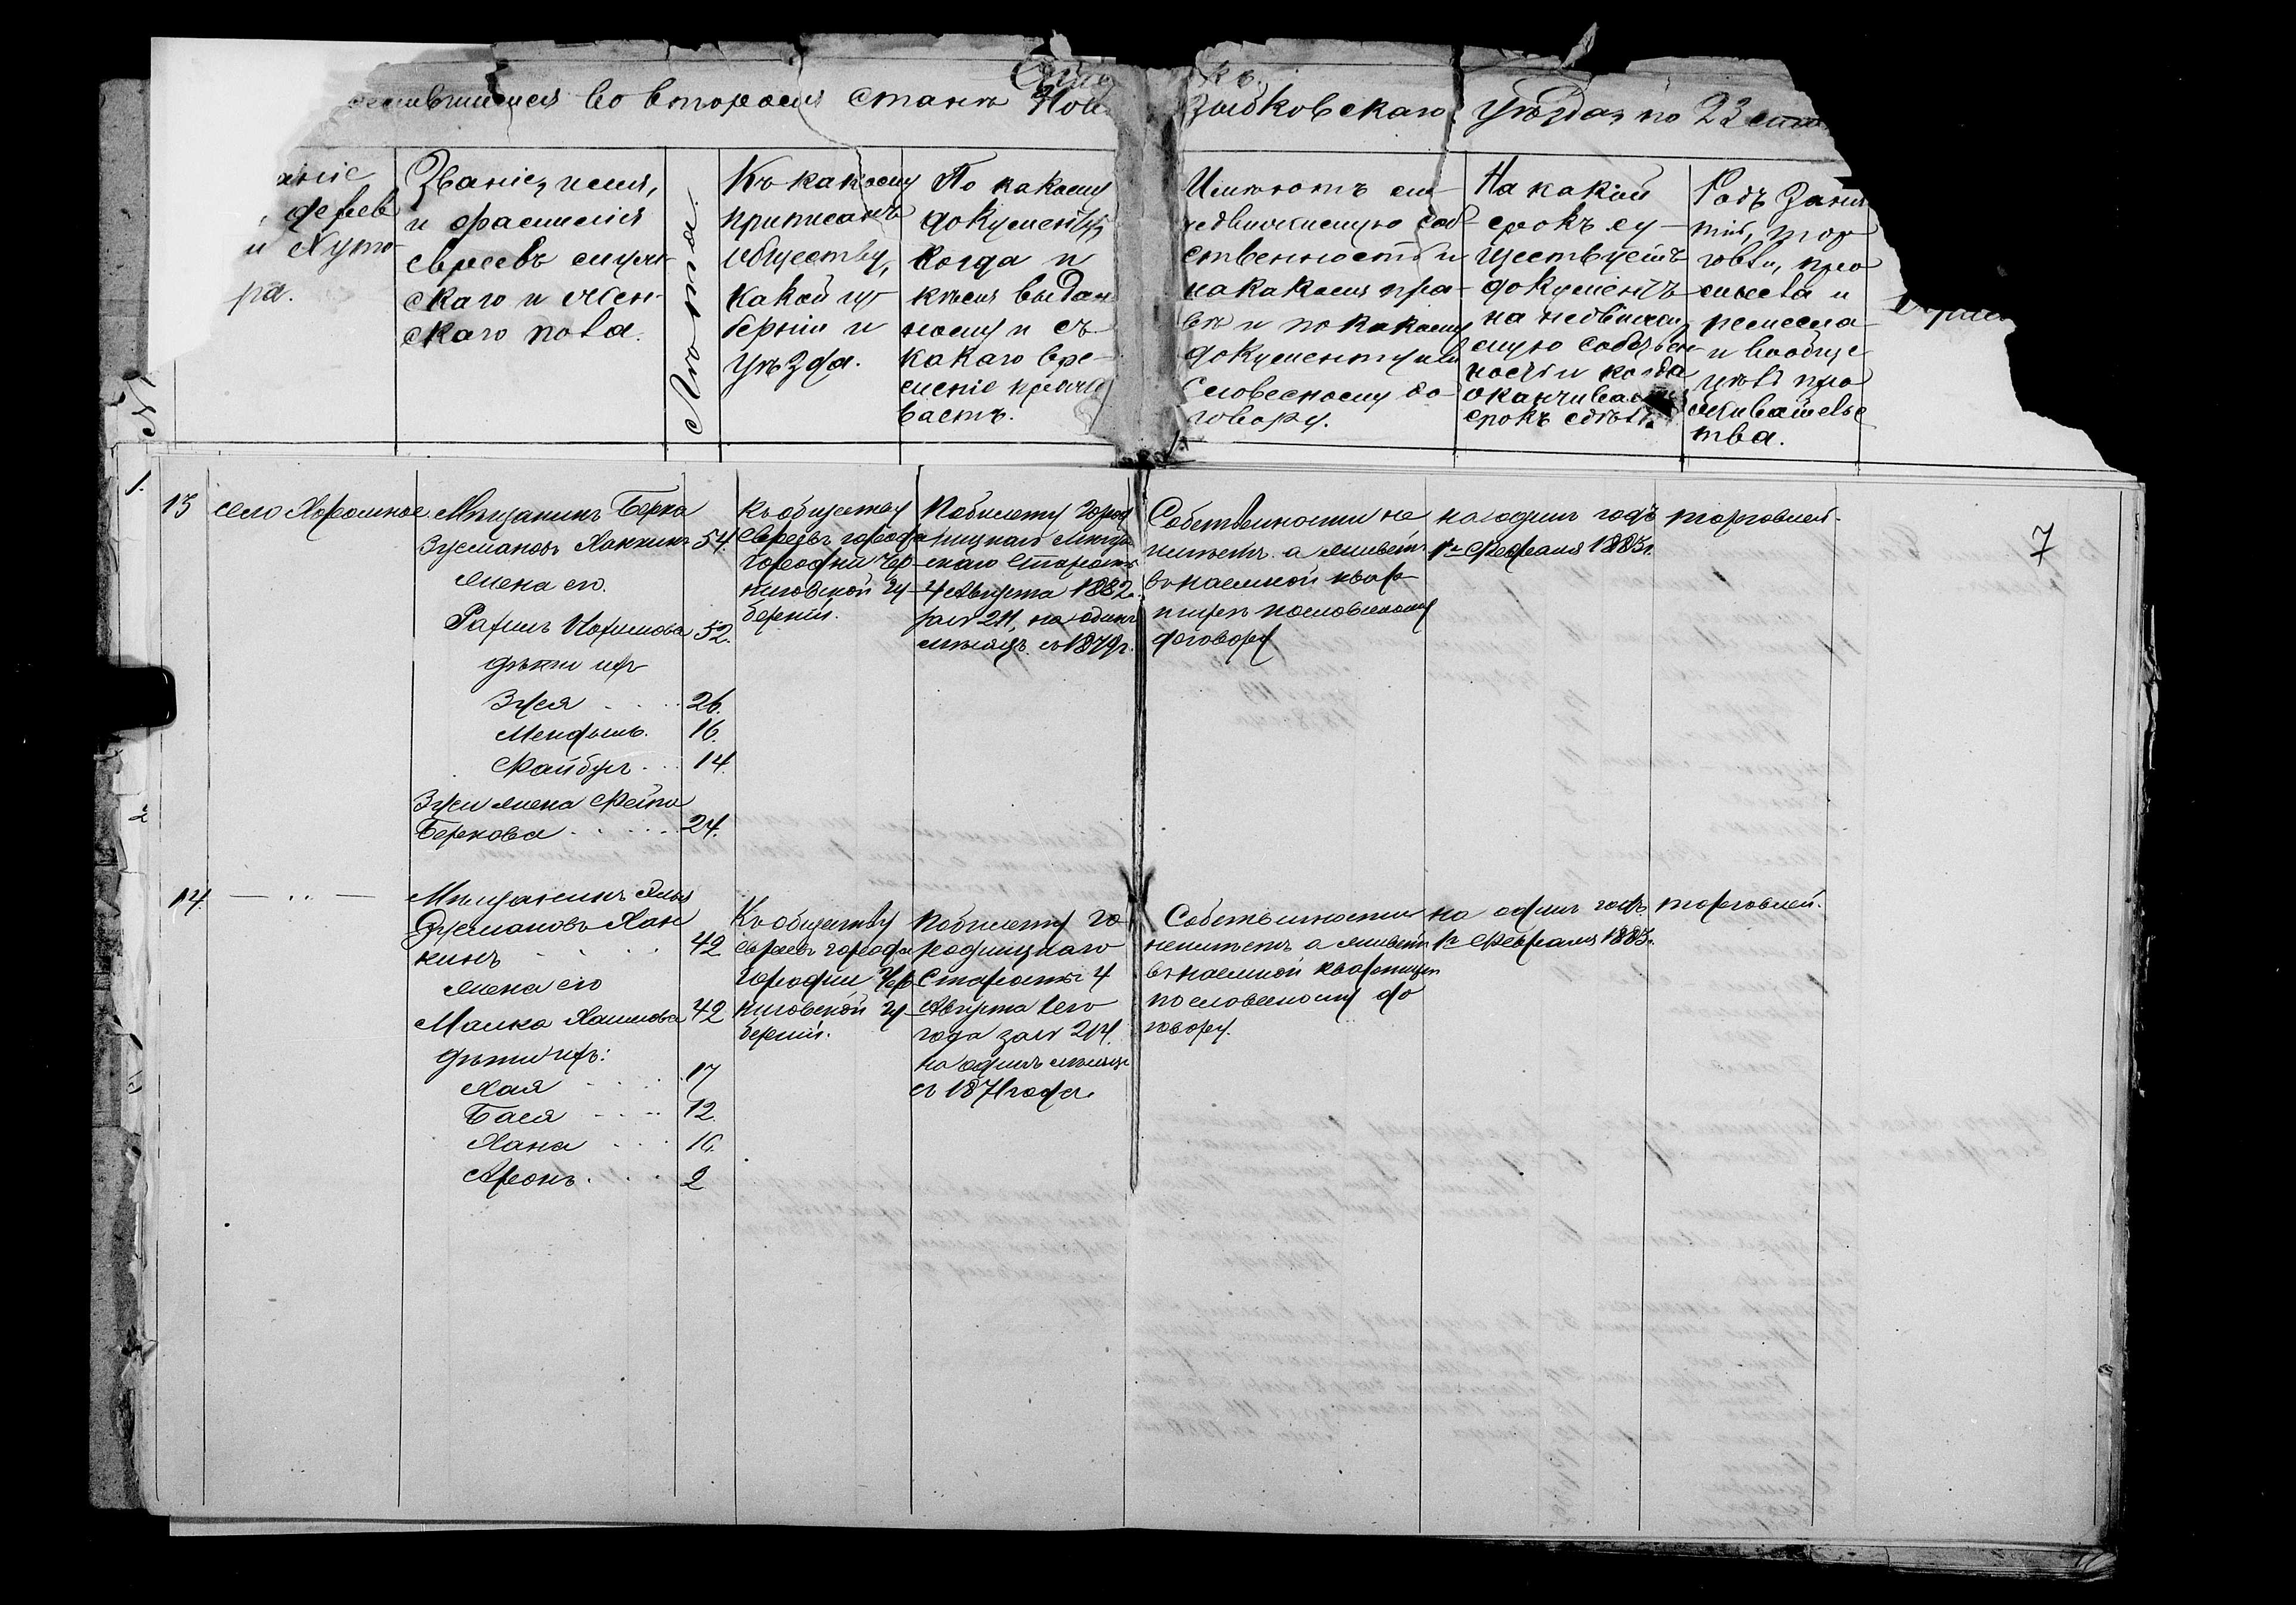 во второмъ станѣ
Зыбковскаго уѣзда, по 23
дерев
и Хуто-
ра.
Званіе, имя,
и фамилія
евреевъ муж-
скаго и жен-
скаго пола.
Лѣта.
Къ какому
приписанъ
обществу,
какой гу-
берніи и
уѣзда.
По какому
документу,
когда и
кѣмъ выдан-
ному и съ
какаго вре-
мени прожи-
ваетъ.
Имѣютъ ли
недвижимую соб-
ственность и
на какомъ пра-
вѣ и по какому
документу или
словесному до-
говору.
На какой
срокъ су-
ществуетъ
документъ
на недвижи-
мую собствен-
ность и когда
оканчивается
срокъ
Родъ заня-
тій, тор-
говли, про-
мысла и
ремесла
и вообще
цѣль про
живательс
тва.
1.
13
село Хоромное.
Мѣщанинъ Берка
Зусмановъ Ханкинъ 54.
жена его.
Рахиль 52.
дѣти ихъ
Зуся 26.
Мендель. 16.
Файбуш 14.
Зуси жена Фейга
Беркова 24.
Къ обществу
евреевъ города
Городни Чер-
ниговской гу-
берніи.
По билету Город
ницкаго Мѣщан
скаго Старосты
4 Августа 1882 г.
за № 211, на одинъ
мѣсяцъ. съ 1879 г.
Собственности не
имѣетъ а живетъ
въ наемной квар-
тирѣ по словесному
договору
на одинъ годъ
1го Февраля 1883 г.
торговлей.
7
2
14.
Мѣщанинъ
Зусмановъ Хан
кинъ 42
жена его
Малка Хаимова 42
дѣти ихъ:
Хая 17
Бася 12.
Хана 10.
Аронъ. 2
Къ обществу
евреевъ города
Городни Чер
ниговской гу-
берніи.
По билету Го-
родницкаго
Старосты 4
Августа сего
года за № 214.
на одинъ мѣсяцъ
съ 1871 года.
Собственности
не имѣетъ а живетъ
въ наемной квартирѣ
по словесному до
говору.
на одинъ годъ
1го Февраля 1883 г.
торговлей.